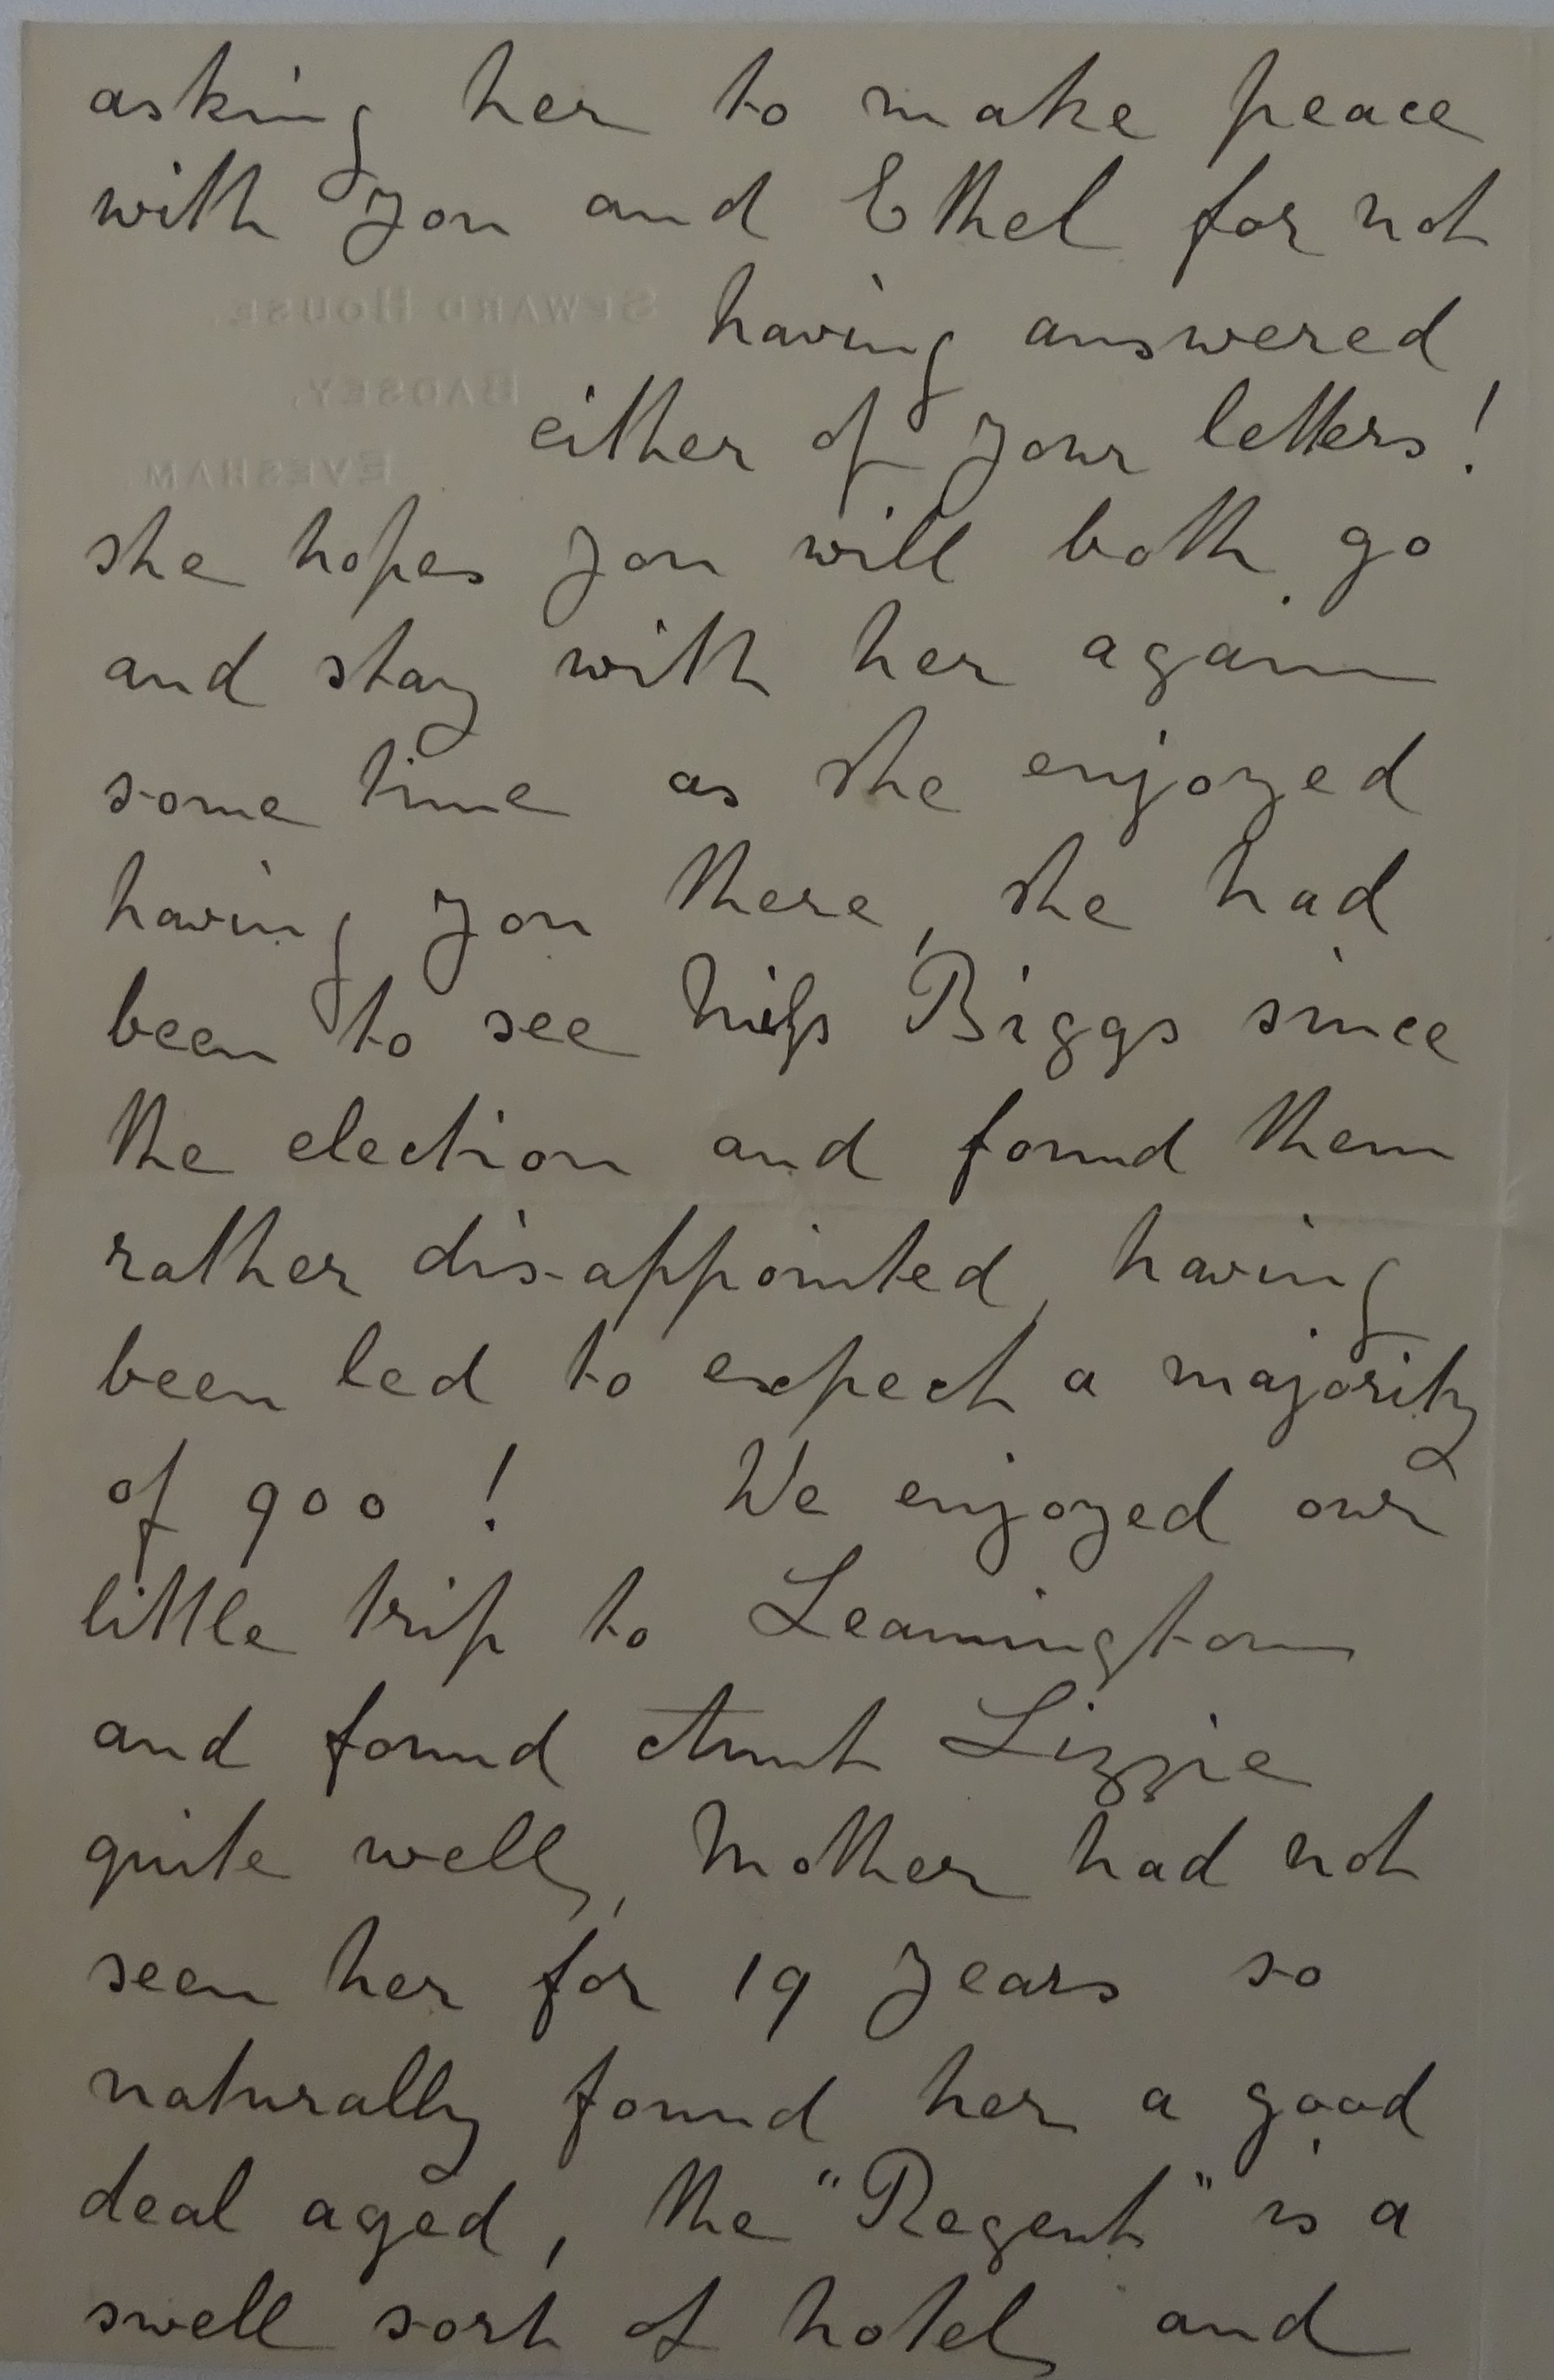 asking her to make peace
with you and Ethel for not
having answered
either of your letters!
she hopes you will both go
and stay with her again
some time as she enjoyed
having you there, she had
been to see Miss Biggs since
the election and found them
rather dis-appointed, having
been led to expect a majority
of 900! We enjoyed our
little trip to Leamington
and found Aunt Lizzie
quite well, Mother had not
seen her for 19 years so
naturally found her a good
deal aged, the "Regent" is a
swell sort of hotel and
SEWARD HOUSE,
BADSEY,
EVESHAM